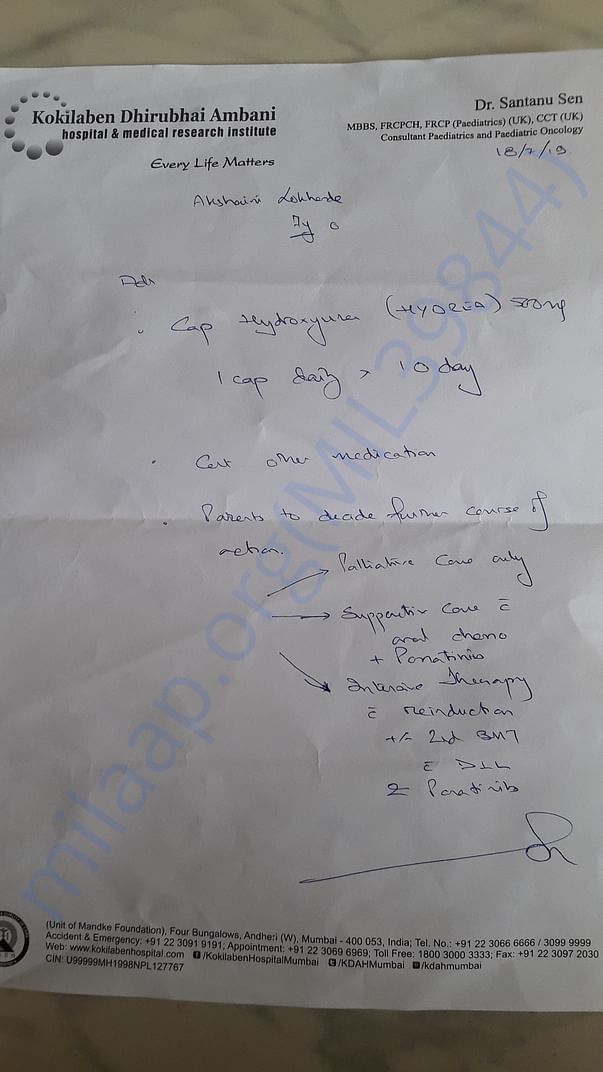 Kokilaben Dhirubhai Ambani
hospital & medical research institute
Every Life Matters
Dr. Santanu Sen
MBBS, FRCPCH, FRCP (Paediatrics) (UK), CCT (UK)
Consultant Paediatrics and Paediatric Oncology
18/7/19
7y
Cap Hydroxyurea (HYDREA) 500mg
1 cap daily × 10 day
other medication
Parents to decide further course of
action.
Palliative Care only
Supportive Care c̄
oral chemo
+ Ponatinib
Intensive therapy
c̄ reinduction
+/- 2nd BMT
c̄ DLI
Ponatinib
milaap.org(MIL39844)
(Unit of Mandke Foundation), Four Bungalows, Andheri (W), Mumbai - 400 053, India; Tel. No.: +91 22 3066 6666 / 3099 9999
Accident & Emergency: +91 22 3091 9191; Appointment: +91 22 3069 6969; Toll Free: 1800 3000 3333; Fax: +91 22 3097 2030
Web: www.kokilabenhospital.com /KokilabenHospitalMumbai /KDAHMumbai /kdahmumbai
CIN: U99999MH1998NPL127767